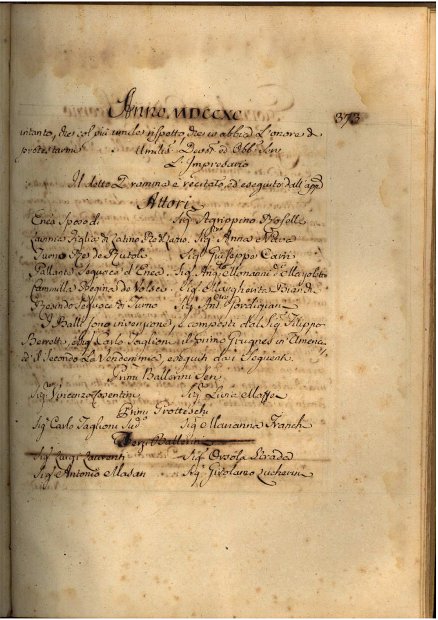 Anno MDCCXC 373
intanto, che col più umile rispetto, che io abbia L'onore di
protestarmi Umilis.o Devot.o ed Obb.o Serv.
L'Impresario
Il detto Dramma è recitato, ed eseguito dall' app.
Attori
Enea Sposo di Sig.r Agrippino Roselli
Lavinia Figlia di Latino Re Sig.ra Anna
Turno Re de Rutoli Sig.r Giuseppe Carri
Pallante Seguace di Enea Sig.r Ang.o Monanni d.o Manzoletto
Cammilla Regina de Volsci Sig.ra Margherita
Seguace di Turno Sig.r And.a
I Balli sono invenzione, e composti dal Sig.r Filippo
Beretti, e Sig.r Carlo Taglioni, il primo in America
ed il Secondo La Vendemmia, eseguiti dai Seguenti
Primi Ballerini Serj
Sig.r Vincenzo Cosentini Sig.ra Luisa
Primi Grotteschi
Sig.r Carlo Taglioni Sud.o Sig.ra Marianna Franchi
Terzi Ballerini
Sig.r Luigi Laurenti Sig.ra Orsola Strada
Sig.r Antonio Masati Sig.r Girolamo